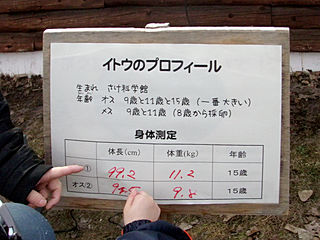 イトウのプロフィール
生まれ さけ科学館
年齢 オス 9歳と11歳と15歳 (一番大きい)
メス 9歳と11歳 (8歳から採卵)
身体測定
体長(cm) 体重(kg) 年齢
① 99.2 11.2 15歳
オス② 9.8 15歳